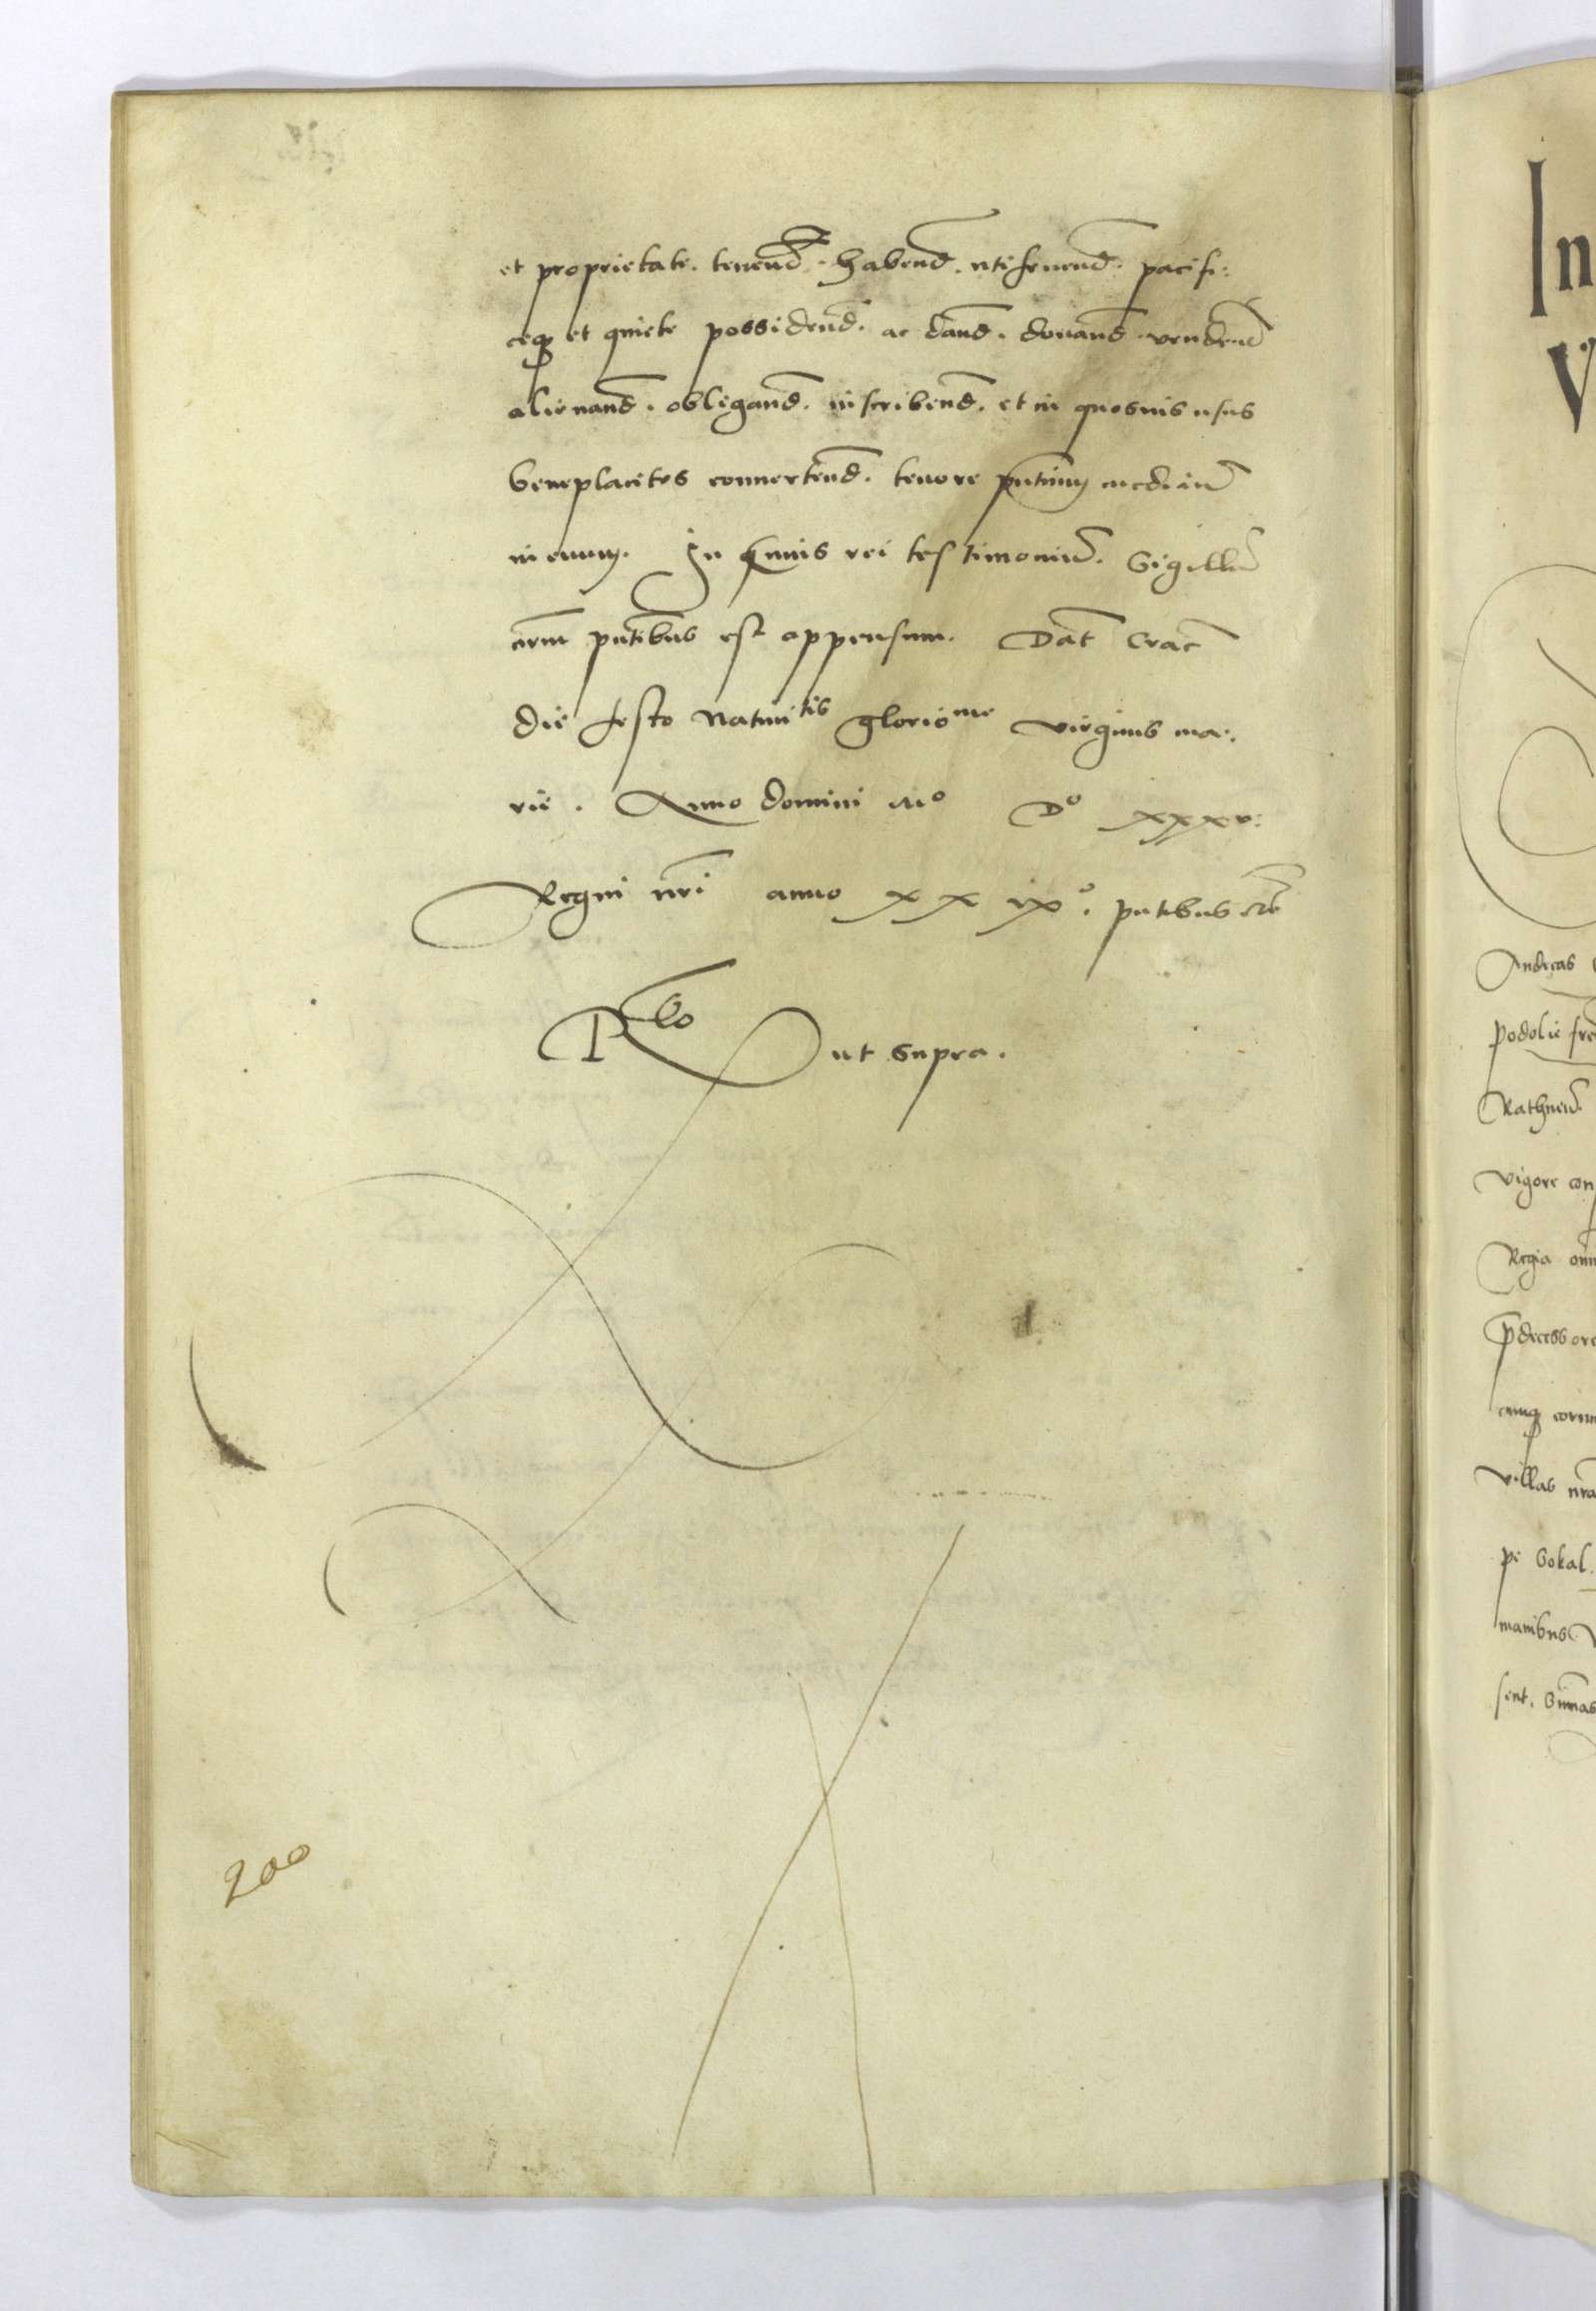 et proprietate. tenend. habend. utifruend. pacifi:
ceq; et quiete possidend. ac dand. donand. vendend
alienand. obligand. inscribend. et in quosvis usus
beneplacitos convertend. tenore pntium mediand
in evum. In cuius rei testimonium. Sigillu
nrm pntibus est appensum. Dat Crac
die festo Nativitis gloriosae virginis ma:
rie. Anno domini Mo Do xxxv:
Regni nri anno xxixo. pntibus etc
Rlo ut supra.
200
In
V
Andreas
podolie
Vigore con
Regia
pdecessore
Villas nra
pe Sokal.
manibus
sent.